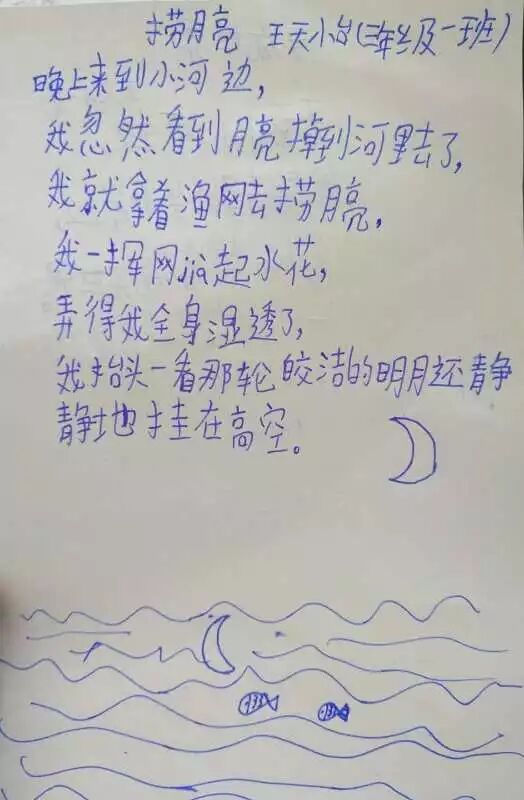 捞月亮 王天小台(三年级一班)
晚上来到小河边,
我忽然看到月亮掉到河里去了,
我就拿着渔网去捞月亮,
我一挥网jiā起水花,
弄得我全身湿透了,
我抬头一看那轮皎洁的明月还静
静地挂在高空。